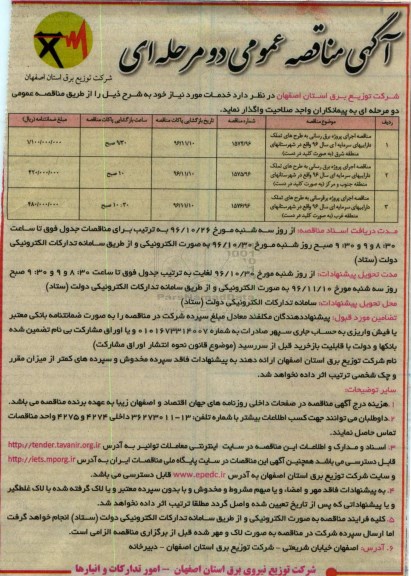 آگهی مناقصه عمومی دو مرحله ای
شرکت توزیع برق استان اصفهان
شرکت توزیع برق استان اصفهان در نظر دارد خدمات مورد نیاز خود به شرح ذیل را از طریق مناقصه عمومی
دو مرحله ای به پیمانکاران واجد صلاحیت واگذار نماید.
ردیف موضوع مناقصه شماره مناقصه تاریخ بازگشایی پاکات مناقصه ساعت بازگشایی پاکات مناقصه مبلغ ضمانتنامه (ریال)
۱ مناقصه اجرای پروژه برق رسانی به طرح های تملک دارایهای سرمایه ای سال ۹۶ واقع در شهرستانهای منطقه شرق (به صورت کلید در دست) ۹۶/۱۱/۱۰ ۹:۳۰ صبح ۱/۱۰۰/۰۰۰/۰۰۰
۲ مناقصه اجرای پروژه برق رسانی به طرح های تملک دارایهای سرمایه ای سال ۹۶ واقع در شهرستانهای منطقه جنوب و مرکز (به صورت کلید در دست) ۹۶/۱۱/۱۰ ۱۰ صبح
۳ مناقصه اجرای پروژه برقرسانی به طرح های تملک دارایهای سرمایه ای سال ۹۶ واقع در شهرستانهای منطقه غرب (به صورت کلید در دست) ۹۶/۱۱/۱۰ ۱۰:۳۰ صبح
مدت دریافت اسناد مناقصه: از روز سه شنبه مورخ ۹۶/۱۰/۲۶ به ترتیب برای مناقصات جدول فوق تا ساعت
۸:۳۰ و ۹ و ۹:۳۰ صبح روز شنبه مورخ ۹۶/۱۰/۳۰ به صورت الکترونیکی و از طریق سامانه تدارکات الکترونیکی
دولت (ستاد)
مدت تحویل پیشنهادات: از روز شنبه مورخ ۹۶/۱۰/۳۰ لغایت به ترتیب جدول فوق تا ساعت ۸:۳۰ و ۹ و ۹:۳۰ صبح
روز سه شنبه مورخ ۹۶/۱۱/۱۰ به صورت الکترونیکی و از طریق سامانه تدارکات الکترونیکی دولت (ستاد)
محل تحویل پیشنهادات: سامانه تدارکات الکترونیکی دولت (ستاد)
تضامین مورد قبول: پیشنهاددهندگان مکلفند معادل مبلغ سپرده شرکت در مناقصه را به صورت ضمانتنامه بانکی معتبر
یا فیش واریزی به حساب جاری سپهر صادرات به شماره ۰۱۰۱۶۷۳۳۱۴۰۰۷ و یا اوراق مشارکت بی نام تضمین شده
بانکها و دولت با قابلیت بازخرید قبل از سررسید (موضوع قانون نحوه انتشار اوراق مشارکت)
نام شرکت توزیع برق استان اصفهان ارائه دهند به پیشنهادات فاقد سپرده مخدوش و سپرده های کمتر از میزان مقرر
و چک شخصی ترتیب اثر داده نخواهد شد.
سایر توضیحات:
۱. هزینه درج آگهی مناقصه در صفحات داخلی روزنامه های جهان اقتصاد و اصفهان زیبا به عهده برنده مناقصه می باشد.
۲. داوطلبان می توانند جهت کسب اطلاعات بیشتر با شماره تلفن: ۱۳-۳۶۲۷۳۰۱۱ داخلی ۴۲۷۴ و ۴۲۷۵ واحد مناقصات
تماس حاصل نمایند.
۳. اسناد و مدارک و اطلاعات این مناقصه در سایت اینترنتی معاملات توانیر به آدرس http://tender.tavanir.org.ir
قابل دسترسی می باشد همچنین آگهی این مناقصات در سایت پایگاه ملی مناقصات ایران به آدرس http://iets.mporg.ir
و سایت شرکت توزیع برق استان اصفهان به آدرس www.epedc.ir قابل دسترسی می باشد.
۴. به پیشنهادات فاقد مهر و امضاء و یا مبهم مشروط و مخدوش و با بدون سپرده معتبر و یا لاک گرفته شده با لاک غلطگیر
و یا پیشنهاداتی که پس از تاریخ تعیین شده واصل گردد مطلقا ترتیب اثر داده نخواهد شد.
۵. کلیه فرایند مناقصه به صورت الکترونیکی و از طریق سامانه تدارکات الکترونیکی دولت (ستاد) انجام خواهد گرفت
اما ارسال سپرده شرکت در مناقصه به صورت لاک و مهر شده قبل از برگزاری مناقصه الزامی است.
۶. آدرس: اصفهان خیابان شریعتی – شرکت توزیع برق استان اصفهان – دبیرخانه
شرکت توزیع نیروی برق استان اصفهان – امور تدارکات و انبارها